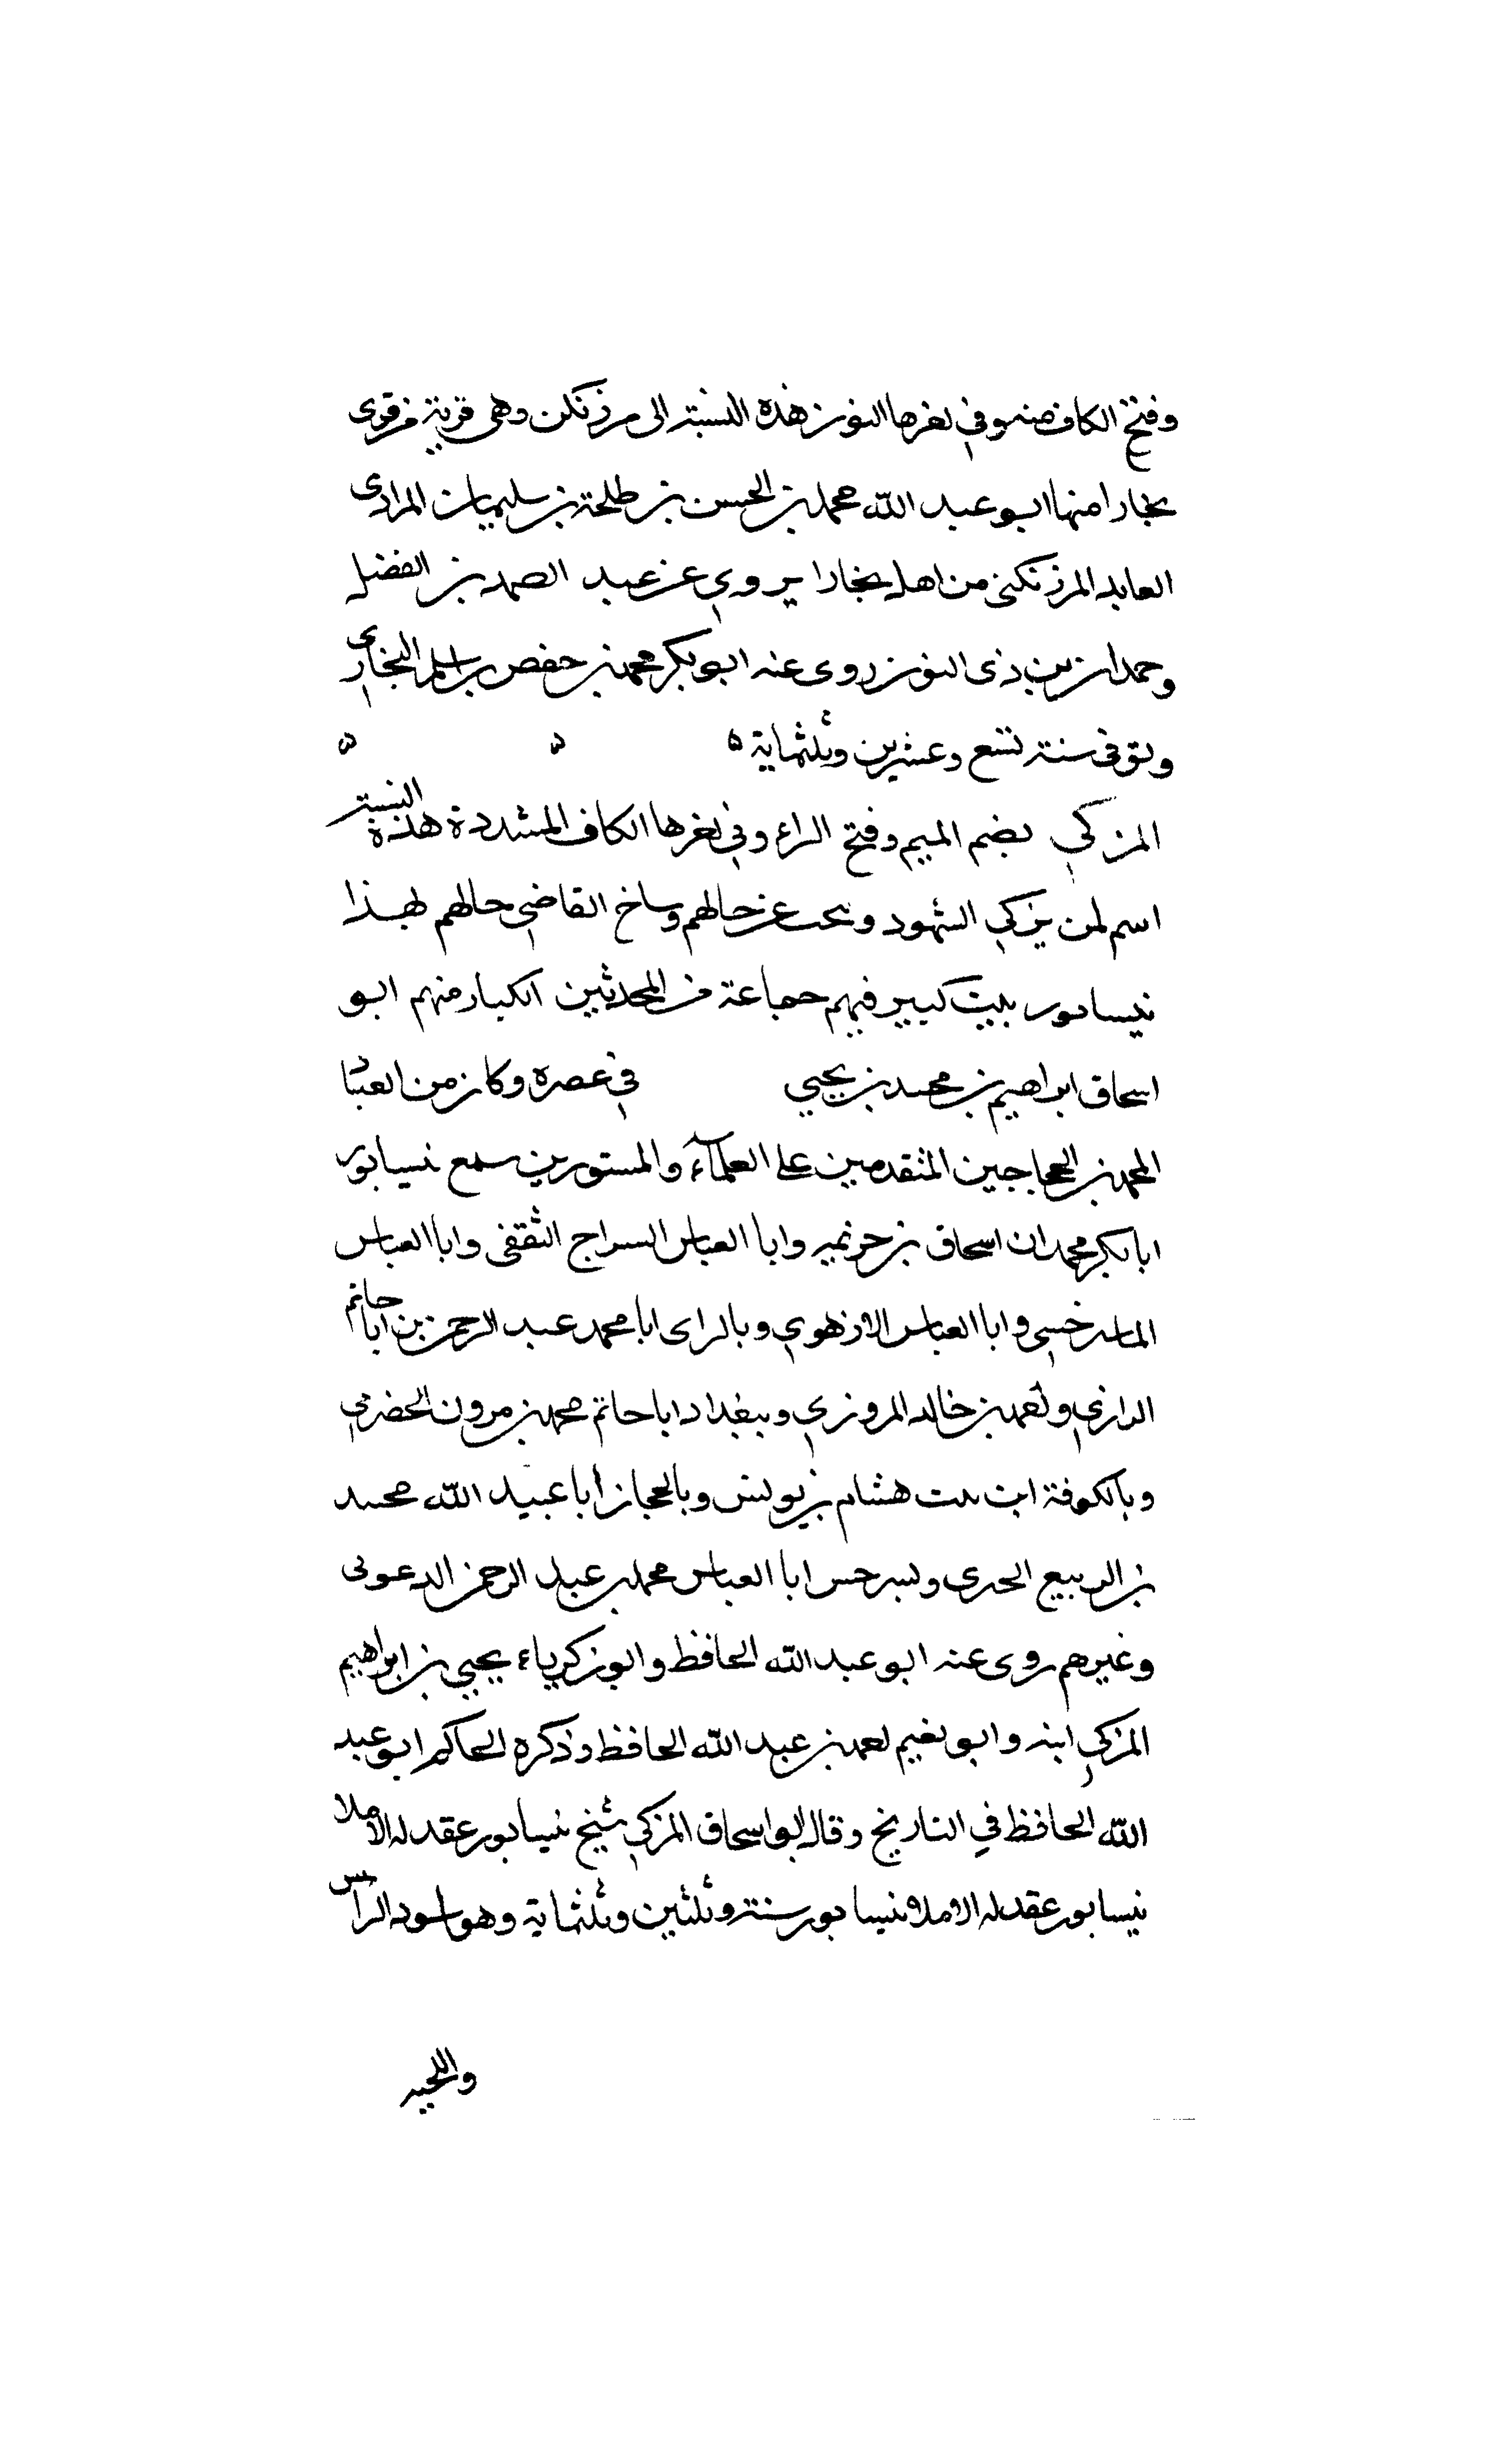 وفتح الكاف منه وفي اخرها النون هذه النسبة الى مرزنكن وهي قرية من قرى
بخارا منها ابو عبد الله محمد بن الحسن بن طلحة بن سليمان المرادى
العابد المرزنكنى من اهل بخارا يروي عن عبد الصمد بن الفضل
وحمدان بن ذى النون روى عنه ابو بكر محمد بن حفص بن اسلم البخارى
وتوفى سنة تسع وعشرين وثلثماية ه ه ه
المزكي بضم الميم وفتح الزاء وفي اخرها الكاف المشددة هذه النسبة
اسم لمن يزكي الشهود ويبحث عن حالهم القاضي حالهم بهذا
نيسابور بيت كبير فيهم جماعة من المحدثين الكبار منهم ابو
اسحاق ابراهيم بن محمد بن يحيي في عصره وكان من العباد
الحجاجين المتقدمين على العلمآء والمستورين سمع نيسابور
ابا بكر محمد بن اسحاق بن خزيمه وابا العباس السراج الثقفى وابا العباس
الماسرخسي وابا العباس الازهوي وبالراى ابا محمد عبد الرحمن بن ابا حاتم
الرازي واحمد بن خالد المروزي وببغداد ابا حاتم محمد بن مرون الحضرمي
وبالكوفة ابن بنت هشام بن يونس وبالحجاز ابا عبيد الله محمد
بن الربيع الحيرى وبسرخس ابا العباس محمد بن عبد الرحمن الدعولى
وغيرهم روى عنه ابو عبد الله الحافظ وابو زكرياء يحيي بن ابراهيم
المزكي ابنه وابو نعيم احمد بن عبد الله الحافظ وذكره الحاكم ابو عبد
الله الحافظ في التاريخ وقال ابو اسحاق المزكي شيخ نيسابور عقد له الاملا
نيسابور عقد له الاملاء نيسابور سنة وثلثين وثلثماية وهو اسود الراس
واللحيه